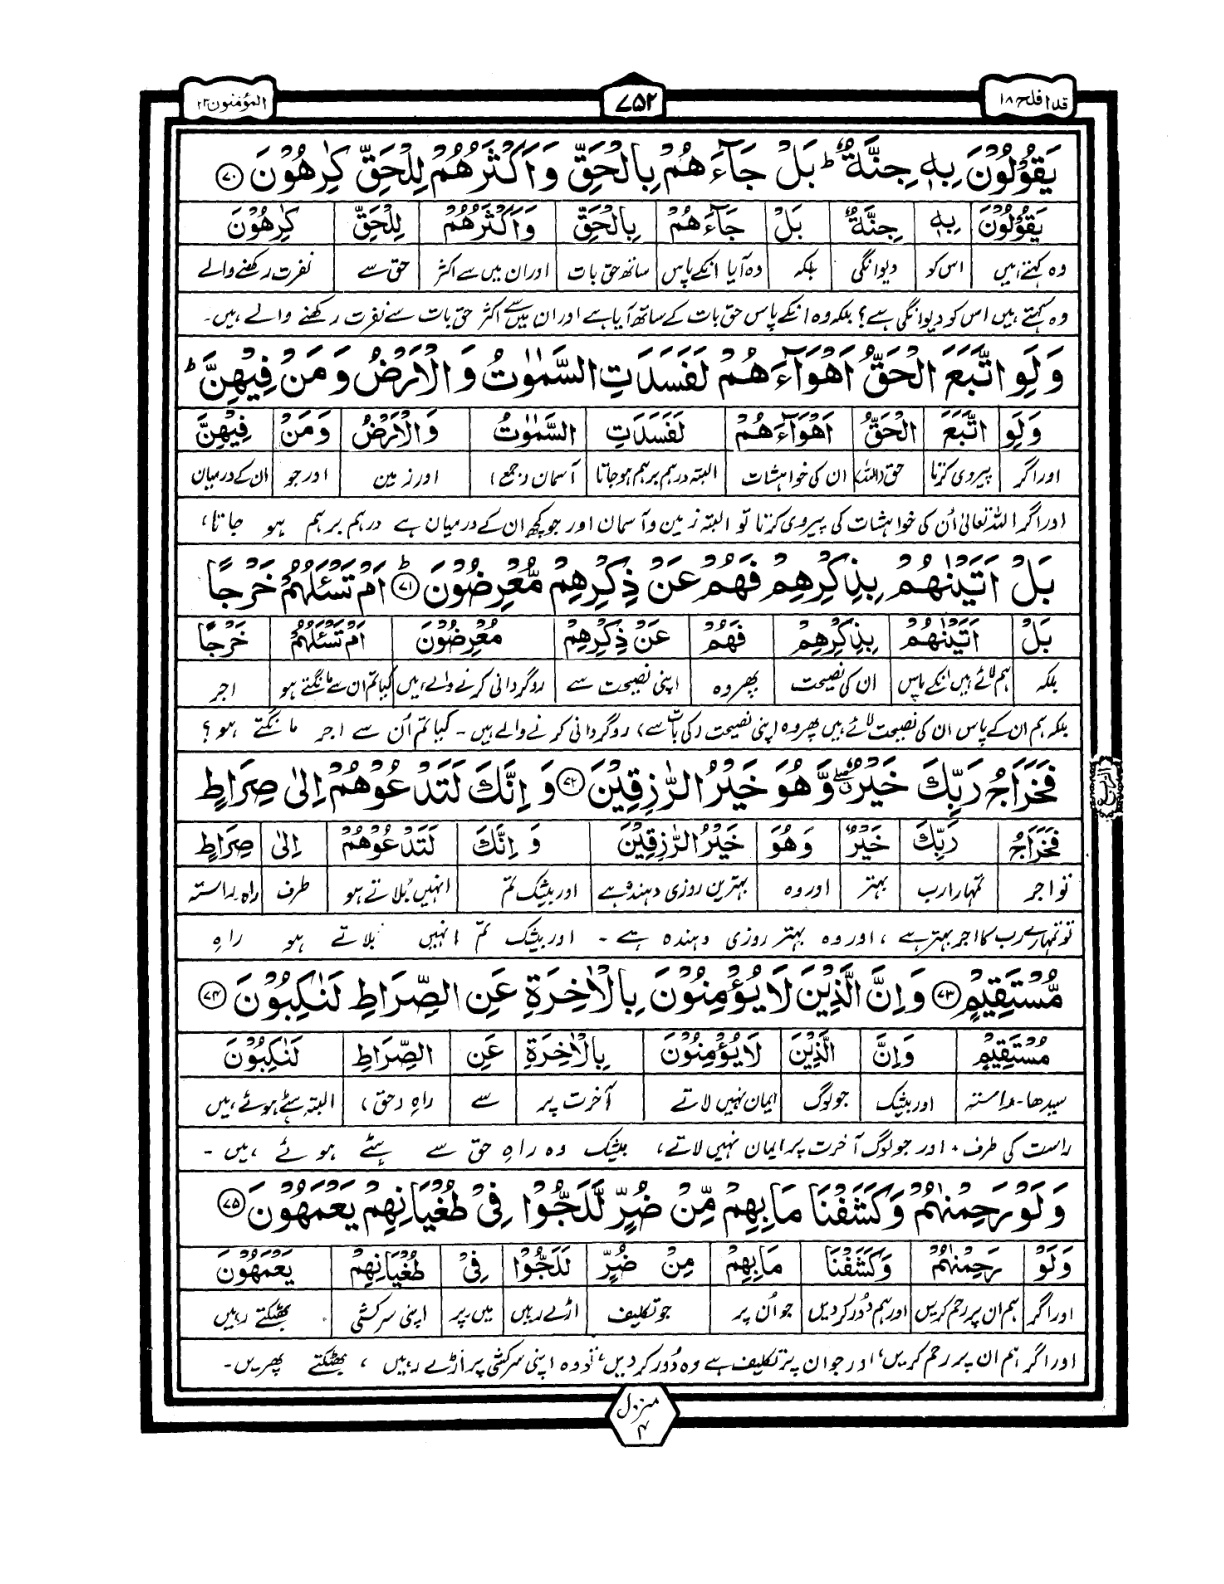 قد افلح ۱۸
۷۵۲
المؤمنون ۲۳
يَقُوْلُوْنَ بِهٖ جِنَّةٌ ؕ بَلْ جَآءَهُمْ بِالْحَقِّ وَاَكْثَرُهُمْ لِلْحَقِّ كٰرِهُوْنَ ۷۰
يَقُوْلُوْنَ بِهٖ جِنَّةٌ بَلْ جَآءَهُمْ بِالْحَقِّ وَاَكْثَرُهُمْ لِلْحَقِّ كٰرِهُوْنَ
وہ کہتے ہیں اس کو دیوانگی بلکہ وہ آیا انکے پاس ساتھ حق بات اور ان میں سے اکثر حق سے نفرت رکھنے والے
وہ کہتے ہیں اس کو دیوانگی ہے؟ بلکہ وہ انکے پاس حق بات کے ساتھ آیا ہے اور ان میں سے اکثر حق بات سے نفرت رکھنے والے ہیں۔
وَلَوِ اتَّبَعَ الْحَقُّ اَهْوَآءَهُمْ لَفَسَدَتِ السَّمٰوٰتُ وَالْاَرْضُ وَمَنْ فِيْهِنَّ ؕ
وَلَوِ اتَّبَعَ الْحَقُّ اَهْوَآءَهُمْ لَفَسَدَتِ السَّمٰوٰتُ وَالْاَرْضُ وَمَنْ فِيْهِنَّ
اور اگر پیروی کرتا حق (اللہ) ان کی خواہشات البتہ درہم برہم ہوجاتا آسمان (جمع) اور زمین اور جو ان کے درمیان
اور اگر اللہ تعالیٰ اُن کی خواہشات کی پیروی کرتا تو البتہ زمین و آسمان اور جو کچھ ان کے درمیان ہے درہم برہم ہو جاتا،
بَلْ اَتَيْنٰهُمْ بِذِكْرِهِمْ فَهُمْ عَنْ ذِكْرِهِمْ مُّعْرِضُوْنَ ؕ ۷۱ اَمْ تَسْـَٔلُهُمْ خَرْجًا
بَلْ اَتَيْنٰهُمْ بِذِكْرِهِمْ فَهُمْ عَنْ ذِكْرِهِمْ مُعْرِضُوْنَ اَمْ تَسْـَٔلُهُمْ خَرْجًا
بلکہ ہم لائے ہیں انکے پاس ان کی نصیحت پھر وہ اپنی نصیحت سے روگردانی کرنے والے ہیں کیا تم ان سے مانگتے ہو اجر
بلکہ ہم ان کے پاس ان کی نصیحت لائے ہیں پھر وہ اپنی نصیحت (کی بات سے) روگردانی کرنے والے ہیں۔ کیا تم اُن سے اجر مانگتے ہو؟
فَخَرَاجُ رَبِّكَ خَيْرٌ ۖ وَّهُوَ خَيْرُ الرّٰزِقِيْنَ ۷۲ وَاِنَّكَ لَتَدْعُوْهُمْ اِلٰى صِرَاطٍ
الربع
فَخَرَاجُ رَبِّكَ خَيْرٌ وَهُوَ خَيْرُ الرّٰزِقِيْنَ وَاِنَّكَ لَتَدْعُوْهُمْ اِلٰى صِرَاطٍ
تو اجر تمہارا رب بہتر اور وہ بہترین روزی دہندہ ہے اور بیشک تم انہیں بُلاتے ہو طرف راہ۔راستہ
تو تمہارے رب کا اجر بہتر ہے، اور وہ بہتر روزی دہندہ ہے۔ اور بیشک تم انہیں بلاتے ہو راہِ
مُّسْتَقِيْمٍ ۷۳ وَاِنَّ الَّذِيْنَ لَا يُؤْمِنُوْنَ بِالْاٰخِرَةِ عَنِ الصِّرَاطِ لَنٰكِبُوْنَ ۷۴
مُسْتَقِيْمٍ وَاِنَّ الَّذِيْنَ لَا يُؤْمِنُوْنَ بِالْاٰخِرَةِ عَنِ الصِّرَاطِ لَنٰكِبُوْنَ
سیدھا۔راستہ اور بیشک جو لوگ ایمان نہیں لاتے آخرت پر سے راہِ (حق) البتہ ہٹے ہوئے ہیں
راست کی طرف۔ اور جو لوگ آخرت پر ایمان نہیں لاتے، بیشک وہ راہِ حق سے ہٹے ہوئے ہیں۔
وَلَوْ رَحِمْنٰهُمْ وَكَشَفْنَا مَا بِهِمْ مِّنْ ضُرٍّ لَّلَجُّوْا فِيْ طُغْيَانِهِمْ يَعْمَهُوْنَ ۷۵
وَلَوْ رَحِمْنٰهُمْ وَكَشَفْنَا مَا بِهِمْ مِنْ ضُرٍّ لَلَجُّوْا فِيْ طُغْيَانِهِمْ يَعْمَهُوْنَ
اور اگر ہم ان پر رحم کریں اور ہم دُور کردیں جو اُن پر جو تکلیف اڑے رہیں میں۔پر اپنی سرکشی بھٹکتے رہیں
اور اگر ہم ان پر رحم کریں، اور جو ان پر تکلیف ہے وہ دُور کردیں، تو وہ اپنی سرکشی پر اَڑے رہیں، بھٹکتے پھریں۔
منزل
۴